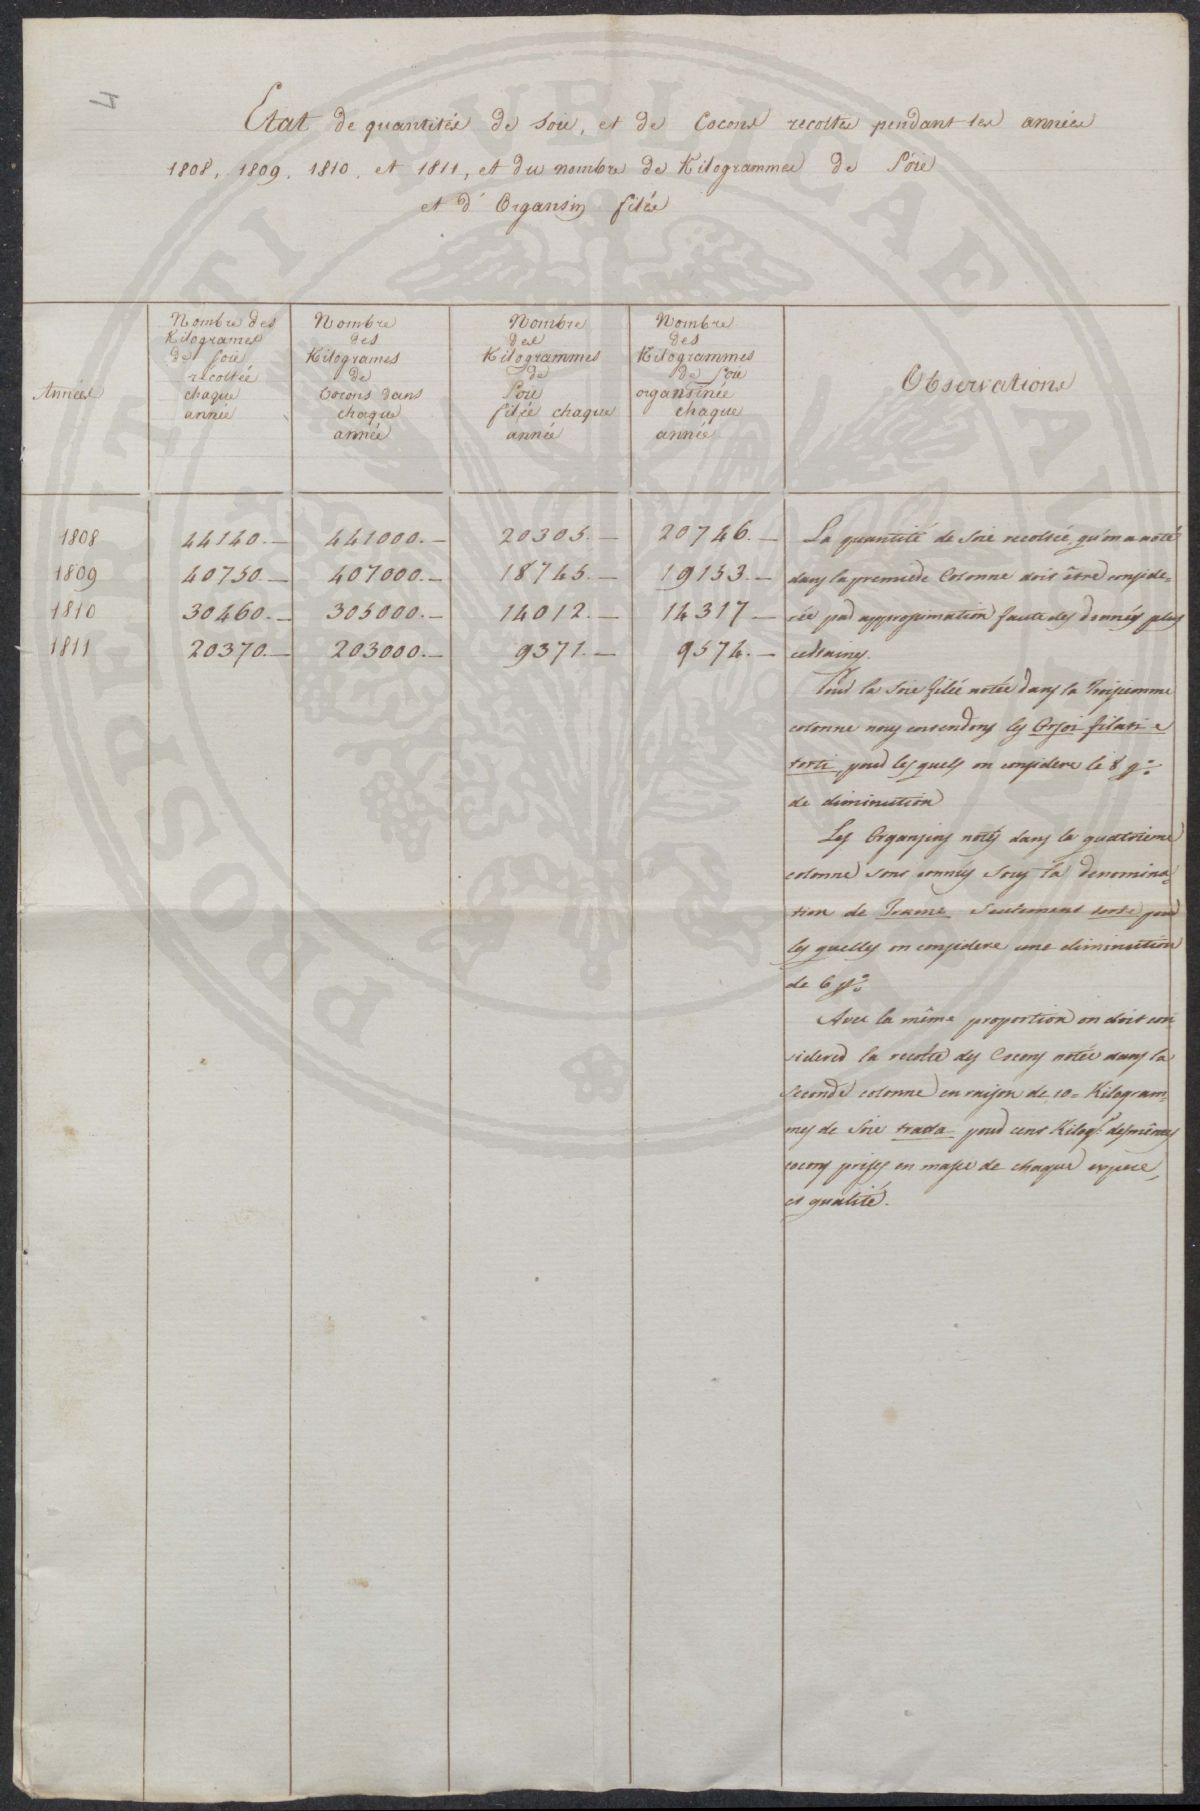 4
Etat de quantités de Soie, et de Cocons recoltés pendant les années
1808, 1809, 1810, et 1811, et du nombre de Kilogrammes de Soie
et d'Organsin filée
Années
Nombre des
Kilogrames
de Soie
récoltée
chaque
année
Nombre
des
Kilogrames
de
Cocons dans
chaque
année
Nombre
des
Kilogrammes
de
Soie
filée chaque
année
Nombre
des
Kilogrammes
de Soie
organsinée
chaque
année
Observations
1808 44140.— 441000.— 20305.— 20746.—
1809 40750.— 407000.— 18745.— 19153.—
1810 30460.— 305000.— 14012.— 14317—
1811 20370.— 203000.— 9371.— 9574.—
La quantité de Soie recoltée, qu'on a noté
dans la premiere Colonne doit être conside=
rée par approximation faute des donnés plus
certaines.
Pour la Soie filée notée dans la Troisiemme
colonne nous entendons les Orsoi filati e
torti, pour les quels on considere le 8 p%
de diminution
Les Organsins notés dans la quatrieme
colonne sont connus sous la denomina=
tion de Trame seulement torte pour
les quelles on considere une diminution
de 6 p%
Avec la même proportion on doit con
siderer la recolte des Cocons notée dans la
Seconde colonne en raison de 10= Kilogram=
mes de Soie tratta pour cent Kilog.s des mêmes
cocons prises en masse de chaque espece,
et qualité.
PROSPERITATI PUBLICAE